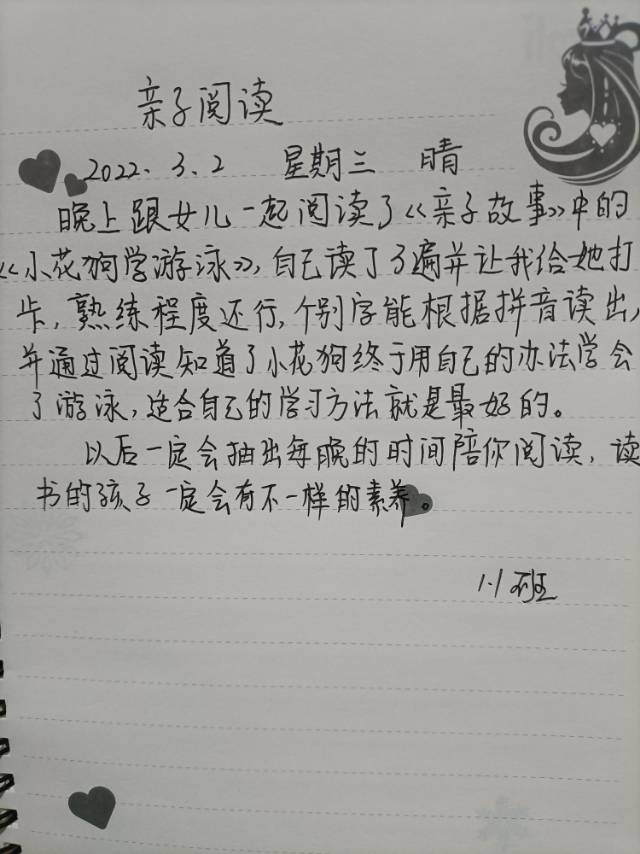 亲子阅读
2022.3.2 星期三 晴
晚上跟女儿一起阅读了《亲子故事》中的
《小花狗学游泳》,自己读了3遍并让我给她打
卡,熟练程度还行,个别字能根据拼音读出,
并通过阅读知道了小花狗终于用自己的办法学会
了游泳,适合自己的学习方法就是最好的。
以后一定会抽出每晚的时间陪你阅读,读
书的孩子一定会有不一样的素养。
1.1班